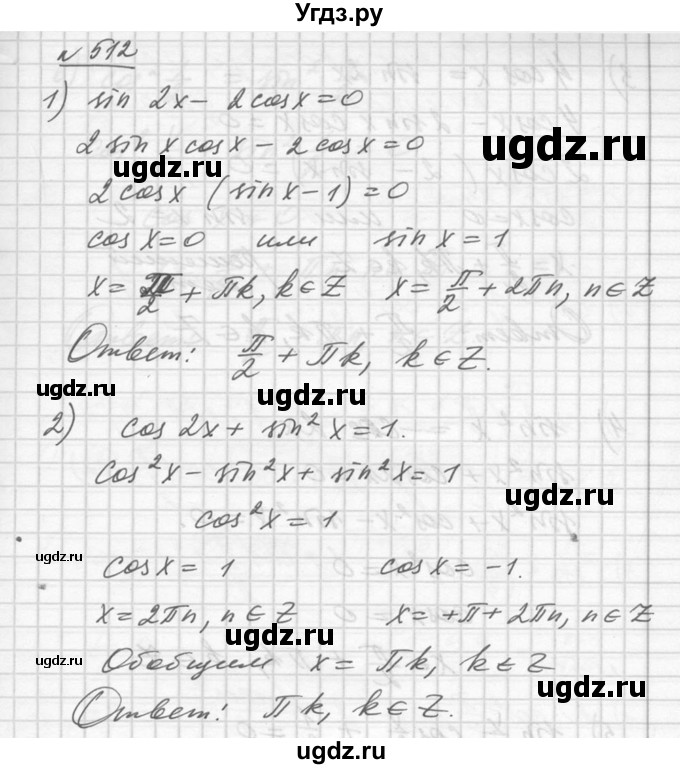 Угдз.ру
№ 512
1) sin 2x - 2cosx = 0
2 sin x cosx - 2 cosx = 0
ugdz.ru ugdz.ru
2 cosx (sin x - 1) = 0
cos x = 0 или sin x = 1
x = π/2 + πk, k ∈ Z x = π/2 + 2πn, n ∈ Z
Ответ: π/2 + πk, k ∈ Z.
ugdz.ru ugdz.ru
2) cos 2x + sin² x = 1.
cos² x - sin² x + sin² x = 1
ugdz.ru
cos² x = 1
ugdz.ru
cos x = 1 cos x = -1.
x = 2πn, n ∈ Z x = +π + 2πn, n ∈ Z
ugdz.ru
ugdz.ru Обобщим x = πk, k ∈ Z
ugdz.ru
Ответ: πk, k ∈ Z.
ugdz.ru